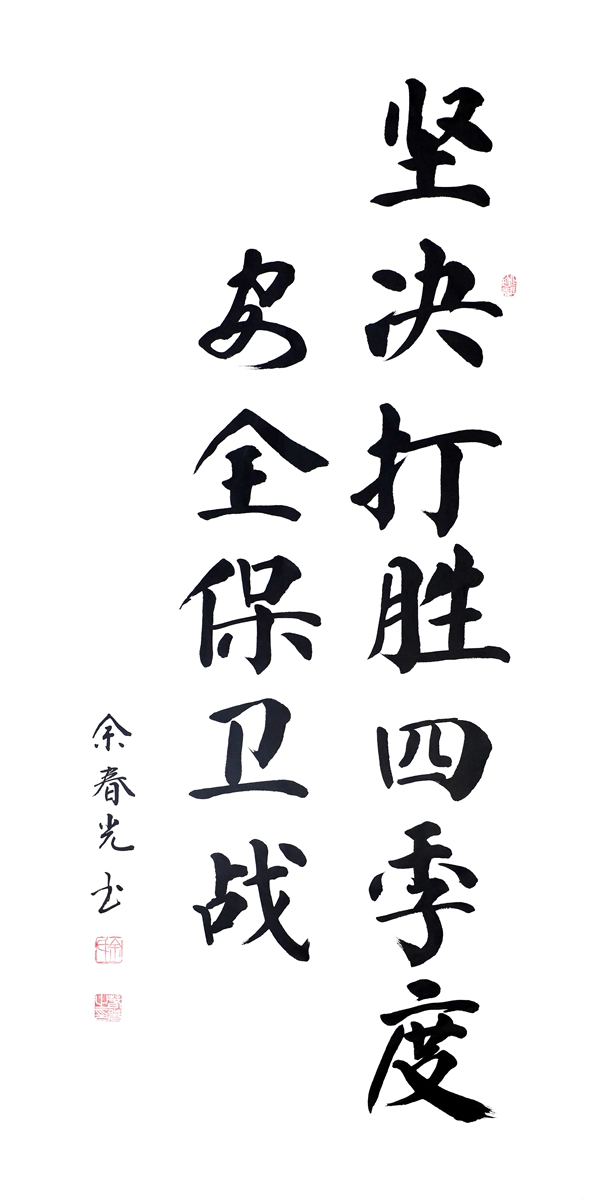 坚决打胜四季度
安全保卫战
余春光书